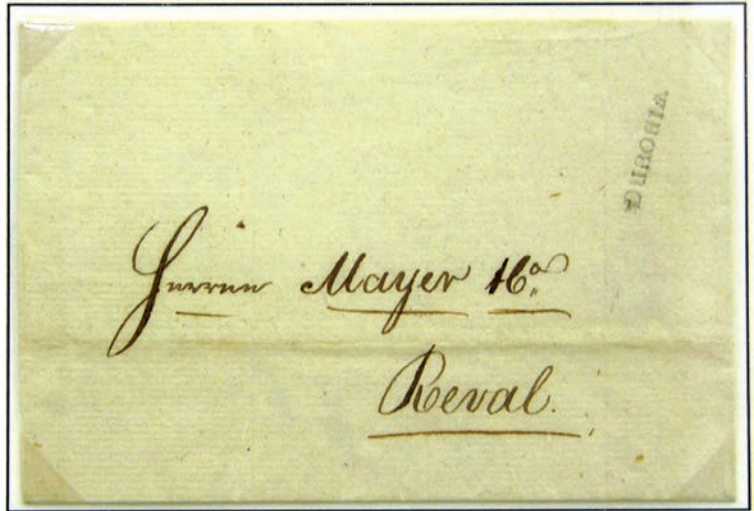 WIBOURG
Herren Mayer & Co.
Reval.